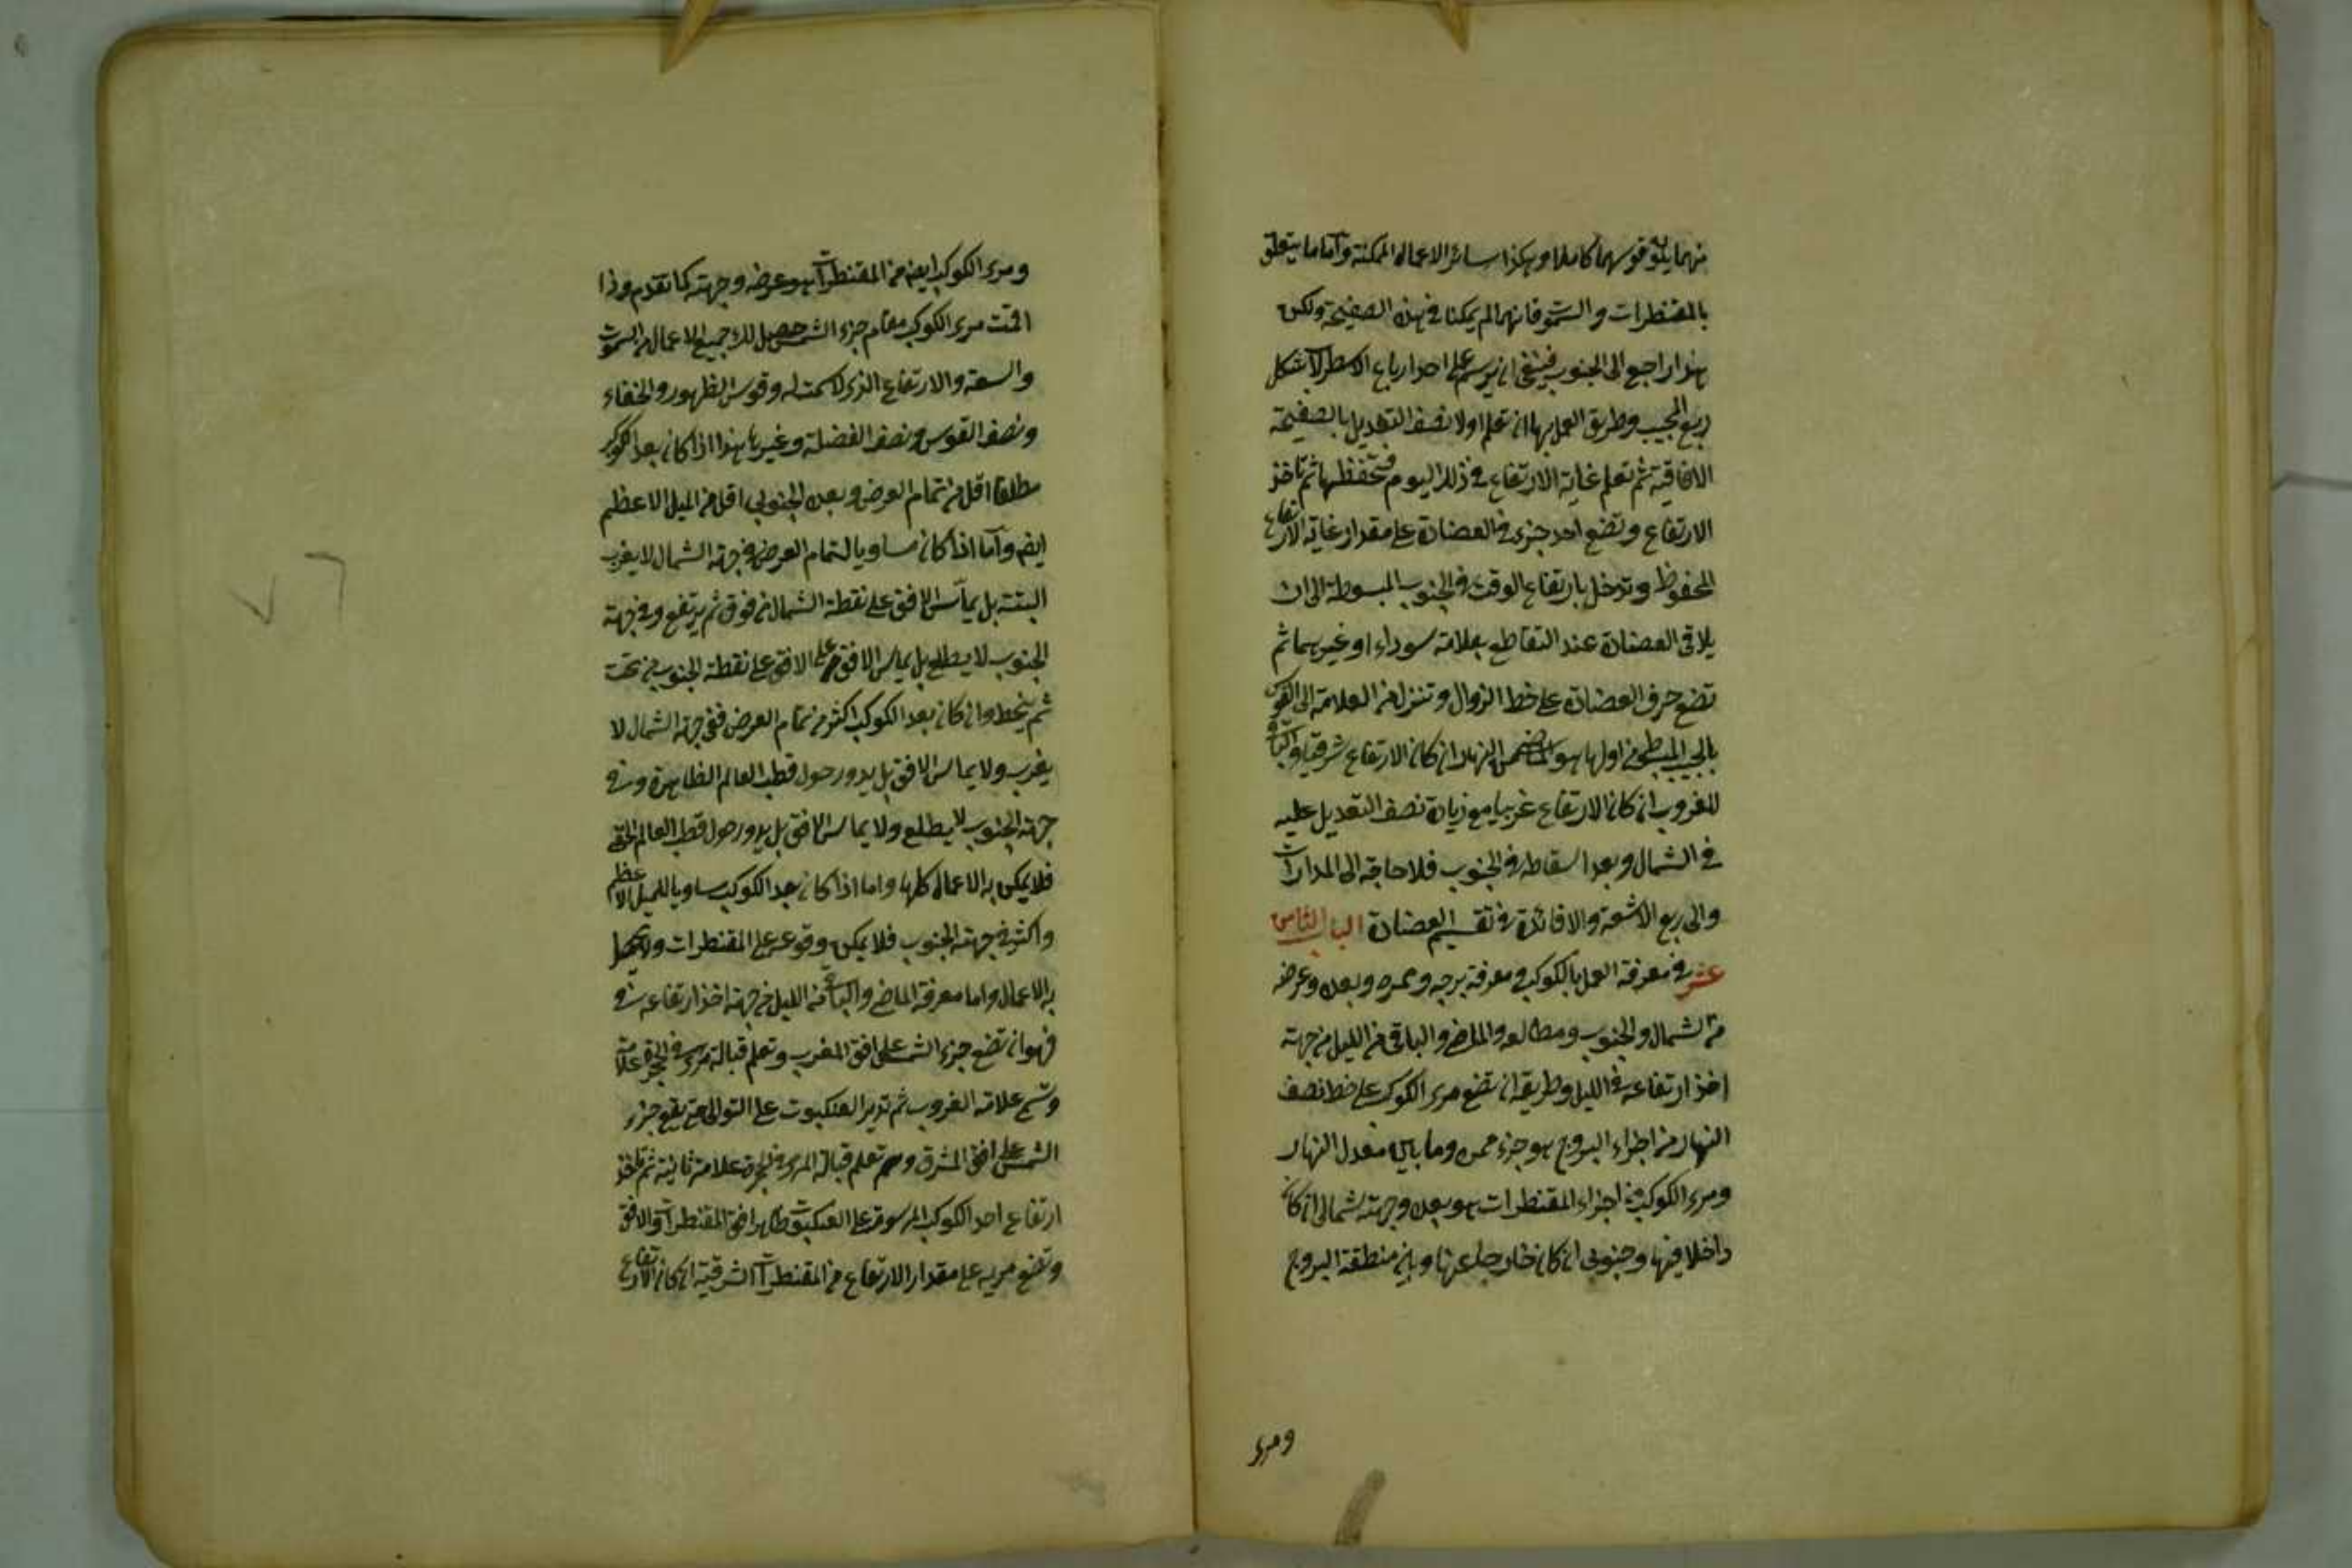 منهما يكون قوسهما كاملا وهكذا سائر الاعمال الممكنة واما ما يتعلق
بالمقنطرات والسموت فانهما لم يمكنا في هذه الصفيحة ولكن
هذا راجع الى الجنوب فينبغي ان يرسم على احد ارباع الاسطرلاب شكل
ربع المجيب وطريق العمل بها ان تعلم اولا نصف التعديل بالصفيحة
الافاقية ثم تعلم غاية الارتفاع في ذلك اليوم فتحفظها ثم تاخذ
الارتفاع وتضع احد جزئى العضادة على مقدار غاية الارتفاع
المحفوظ وتدخل بارتفاع الوقت في الجيوب المبسوطة الى ان
يلاقى العضادة عند التقاطع بعلامة سوداء او غيرهما ثم
تضع حرف العضادة على خط الزوال وتنزل من العلامة الى القوس
بالجيب المبسوط من اولها هو الماضى من النهار ان كان الارتفاع شرقيا والباقى
للغروب ان كان الارتفاع غربيا مع زيادة نصف التعديل عليه
في الشمال وبعد اسقاطه في الجنوب فلا حاجة الى المدارات
والى ربع الاشعة والافائدة في تقسيم العضادة الباب الثامن
عشر في معرفة العمل بالكوكب ومعرفة برجه وممره وبعده وعرضه
من الشمال والجنوب ومطالعه والماضي والباقي من الليل من جهة
اخذ ارتفاعه في الليل وطريقه ان تضع مرى الكوكب على خط نصف
النهار من اجزاء البروج هو جزء ممره وما بين معدل النهار
ومرى الكوكب من اجزاء المقنطرات هو بعده وجهته شمالى ان كان
داخلا فيها وجنوبى ان كان خارجا عنها وبين منطقة البروج
ومرى
ومرى الكوكب ايضا من المقنطرات هو عرضه وجهته كما تقدم واذا
اقمت مرى الكوكب مقام جزء الشمس حصل لك جميع الاعمال من السموت
والسعة والارتفاع الذى لا سمت له وقوس الظهور والخفاء
ونصف القوس ونصف الفضلة وغيرها هذا اذا كان بعد الكوكب
مطلقا اقل من تمام العرض وبعده الجنوبى اقل من الميل الاعظم
ايضا واما اذا كان مساويا لتمام العرض في جهة الشمال لا يغرب
البتة بل يماس الافق على نقطة الشمال من فوق ثم يرتفع وفي جهة
الجنوب لا يطلع بل يماس الافق على الافق على نقطة الجنوب من تحت
ثم ينحط وان كان بعد الكوكب اكثر من تمام العرض ففي جهة الشمال لا
يغرب ولا يماس الافق بل يدور حول قطب العالم الظاهرة وفي
جهة الجنوب لا يطلع ولا يماس الافق بل يدور حول قطب العالم الخفى
فلا يمكن به الاعمال كلها واما اذا كان بعد الكوكب مساويا للميل الاعظم
واكثر في جهة الجنوب فلا يمكن وقوعه على المقنطرات ولا يحصل
به الاعمال واما معرفة الماضي والباقى من الليل من جهة اخذ ارتفاعه في
فهو ان تضع جزء الشمس على افق المغرب وتعلم قبالة مرى في الحجرة علامة
وتسمى علامة الغروب ثم تدير العنكبوت على التوالى حتى يقع جزء
الشمس على افق المشرق وتعلم قبالة المرى في الحجرة علامة ثانية ثم تاخذ
ارتفاع احد الكوكب المرسومة على العنكبوت ظاهرا في المقنطرات والافق
وتضع مريه على مقدار الارتفاع من المقنطرات الشرقية ان كان الارتفاع